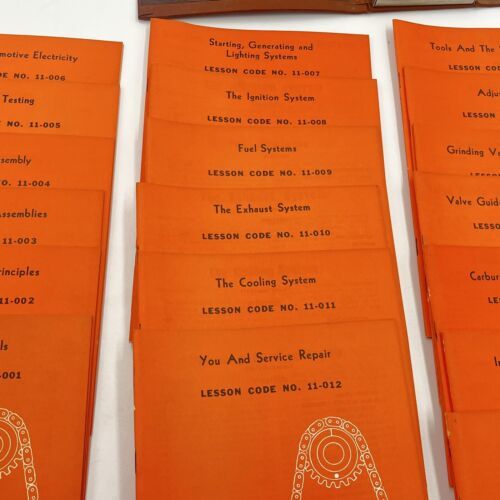 motive Electricity
11-006
Testing
11-005
sembly
11-004
Assemblies
11-003
rinciples
11-002
ls
-001
Starting, Generating and
Lighting Systems
LESSON CODE NO. 11-007
The Ignition System
LESSON CODE NO. 11-008
Fuel Systems
LESSON CODE NO. 11-009
The Exhaust System
LESSON CODE NO. 11-010
The Cooling System
LESSON CODE NO. 11-011
You And Service Repair
LESSON CODE NO. 11-012
Tools And The
LESSON
Adju
LESS
Grinding Va
LESSON
Valve Guide
LESSO
Carbur
LE
In
LE